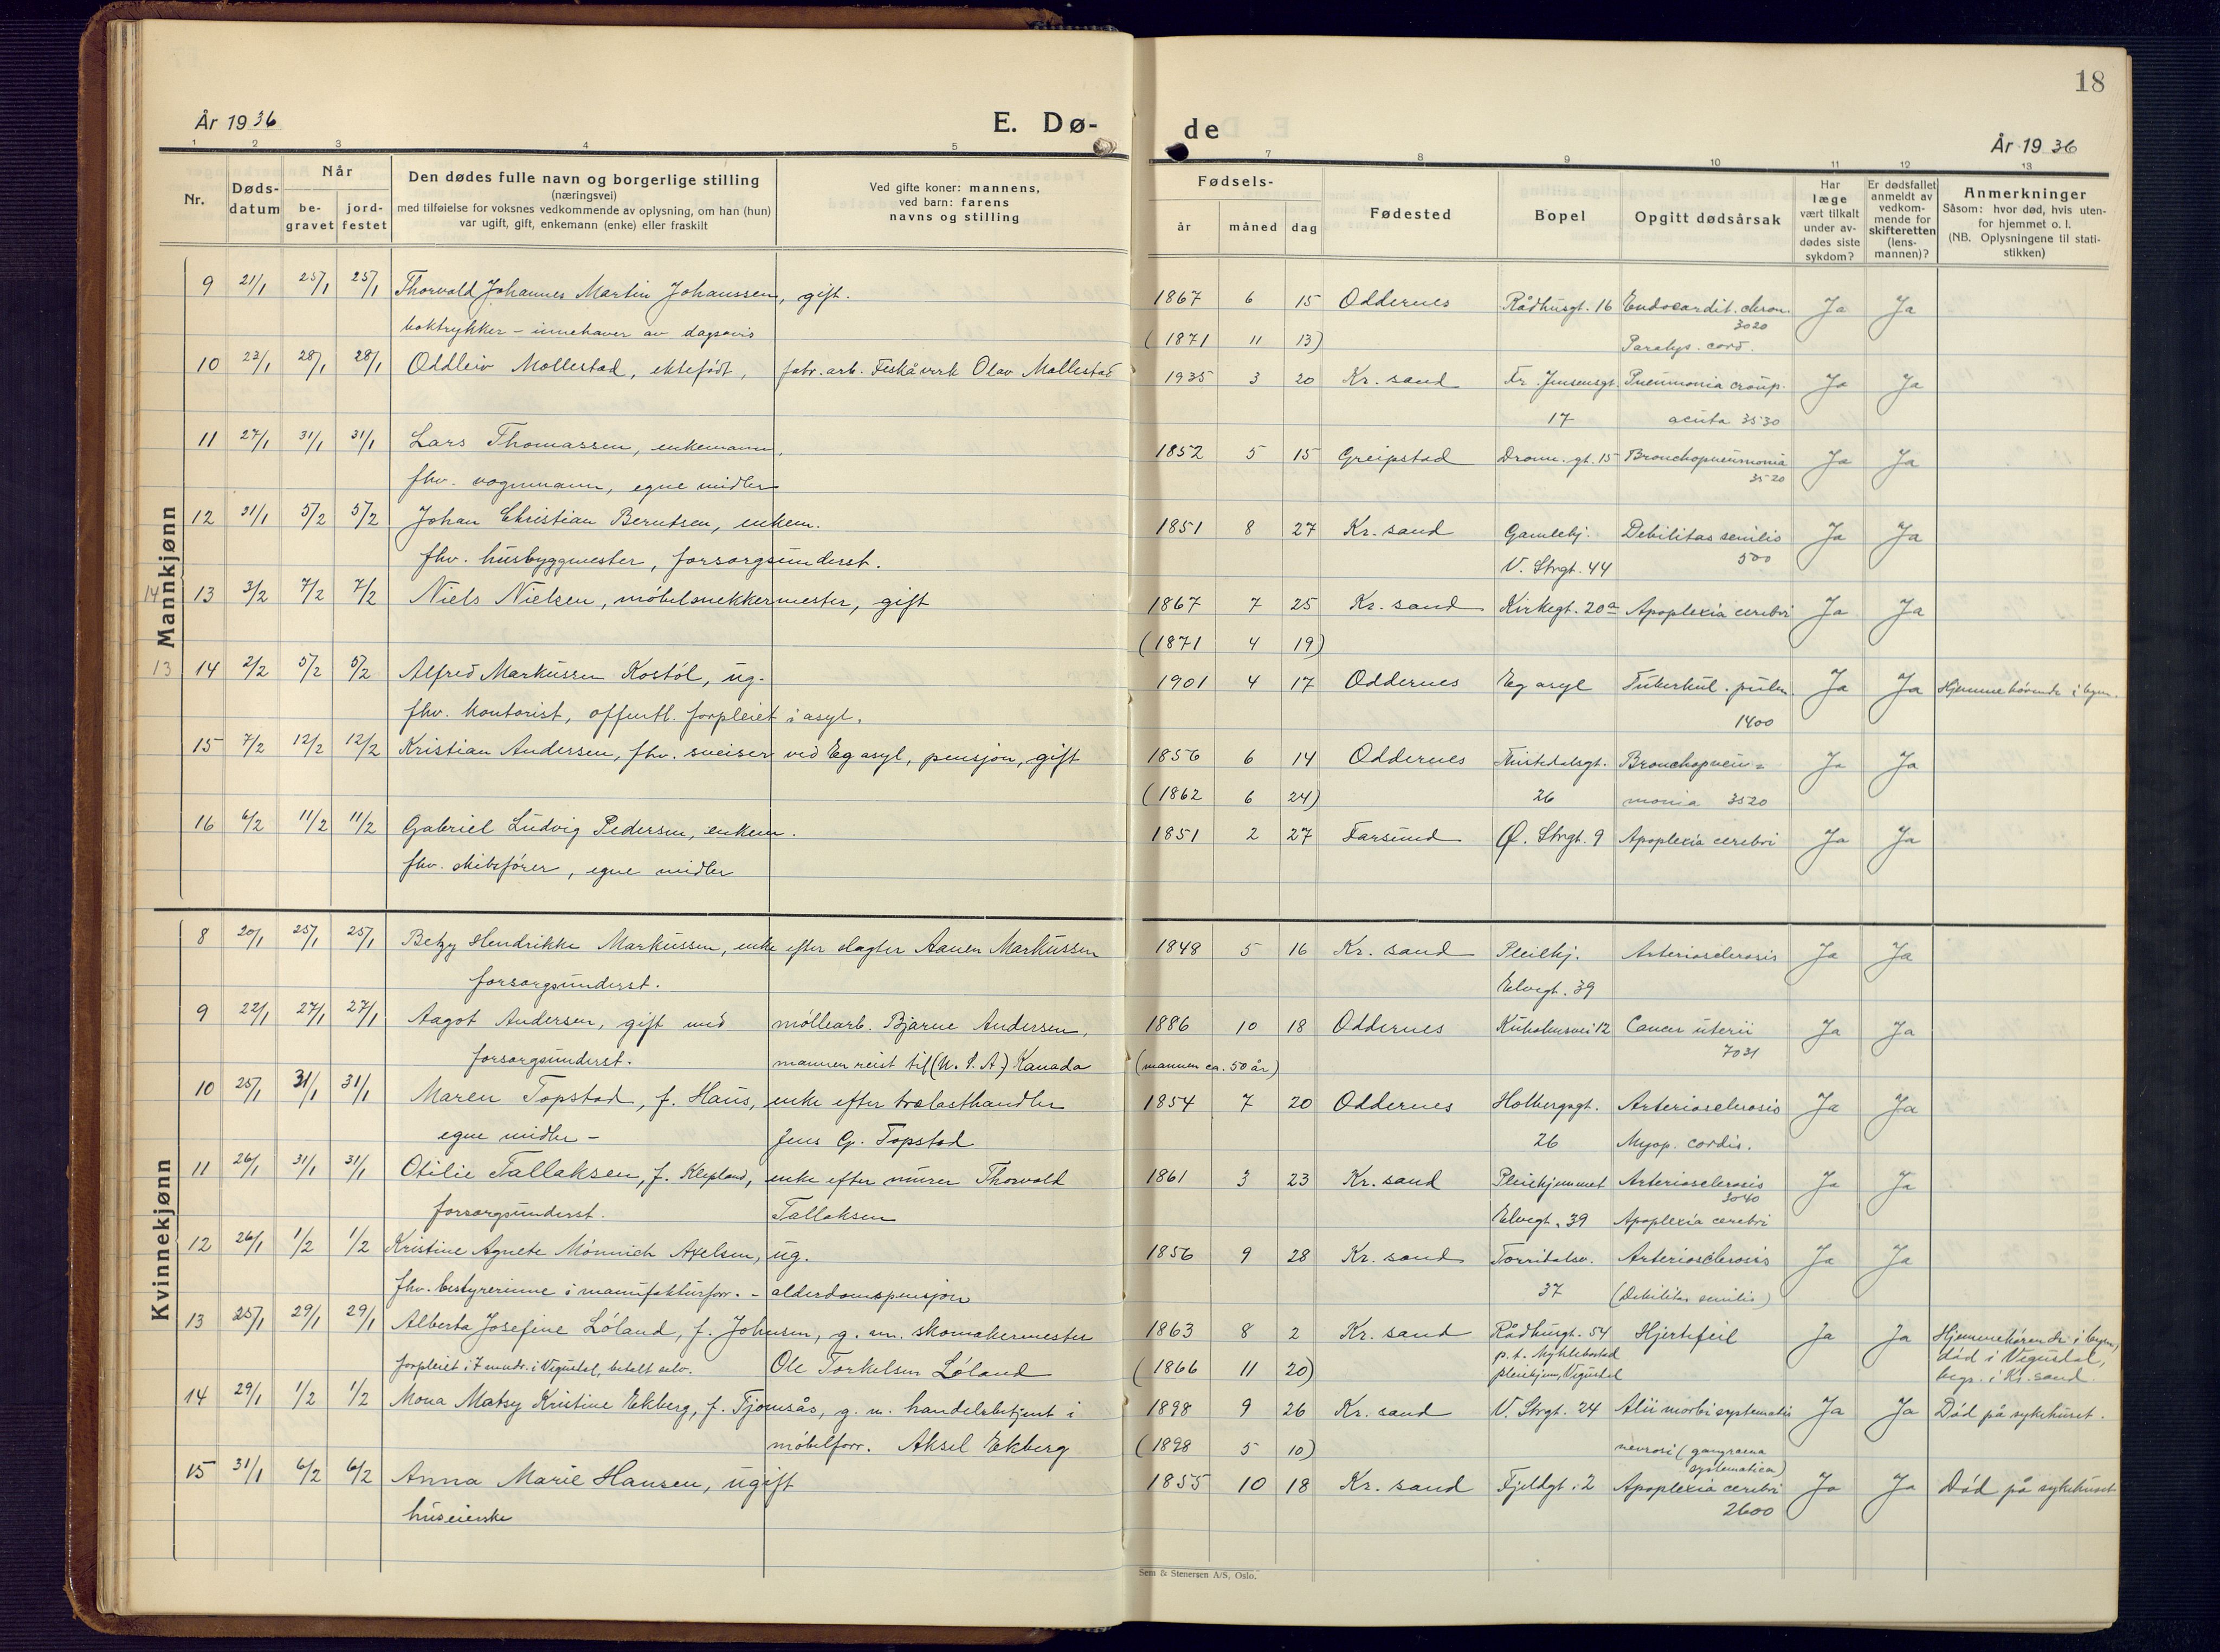 18
År 1936
E. Dø-
de
År 1936
1 2 3 4 5
7 8 9 10 11 12 13
Nr.
Døds-
datum
Når
be-
gravet
jord-
festet
Den dødes fulle navn og borgerlige stilling
(næringsvei)
med tilføielse for voksnes vedkommende av oplysning, om han (hun)
var ugift, gift, enkemann (enke) eller fraskilt
Ved gifte koner: mannens,
ved barn: farens
navns og stilling
Fødsels-
år måned dag
Fødested
Bopel
Opgitt dødsårsak
Har
læge
vært tilkalt
under av-
dødes siste
sykdom?
Er dødsfallet
anmeldt av
vedkom-
mende for
skifteretten
(lens-
mannen)?
Anmerkninger
Såsom: hvor død, hvis uten-
for hjemmet o. l.
(NB. Oplysningene til stati-
stikken)
Mannkjønn
9 21/1 25/1 25/1 Thorvald Johannes Martin Johanssen, gift. 1867 6 15 Oddernes Rådhusgt. 16 Endocardit. chron. Ja Ja
3020
boktrykker - innehaver av dagsavis (1871 11 13) Paralys. cord.
10 23/1 28/1 28/1 Oddleiv Mollestad, ektefødt, fabr. arb. Fiskå verk Olav Mollestad 1935 3 20 Kr. sand Fr. Jensensgt. Pneumonia croup. Ja Ja
17 acuta 3530
11 27/1 31/1 31/1 Lars Thomassen, enkemann, 1852 5 15 Greipstad Dronn. gt. 15 Bronchopneumonia Ja Ja
3520
fhv. vognmann, egne midler
12 31/1 5/2 5/2 Johan Christian Berntsen, enkem. 1851 8 27 Kr. sand Gamlehj. Debilitas senilis Ja Ja
fhv. husbyggmester, forsorgsunderst. V. Strgt. 44 500
14 13 3/2 7/2 7/2 Niels Nielsen, møbelsnekkermester, gift 1867 7 25 Kr. sand Kirkegt. 20a Apoplexia cerebri Ja Ja
(1871 4 19)
13 14 2/2 5/2 5/2 Alfred Markussen Kostøl, ug. 1901 4 17 Oddernes Eg asyl Tuberkul. pulm. Ja Ja Hjemmehørende i byen.
fhv. kontorist, offentl. forpleiet i asyl. 1400
15 7/2 12/2 12/2 Kristian Andersen, fhv. sveiser ved Eg asyl, pensjon, gift 1856 6 14 Oddernes Tristedalsgt. Bronchopneu- Ja Ja
(1862 6 24) 26 monia 3520
16 6/2 11/2 11/2 Gabriel Ludvig Pedersen, enkem. 1851 2 27 Farsund Ø. Strgt. 9 Apoplexia cerebri Ja Ja
fhv. skibsfører, egne midler
Kvinnekjønn
8 20/1 25/1 25/1 Betzy Hendrikke Markussen, enke efter slagter Aanen Markussen 1849 5 16 Kr. sand Pleiehj. Arteriosclerosis Ja Ja
forsorgsunderst. Elvegt. 39
9 22/1 27/1 27/1 Aagot Andersen, gift med møllearb. Bjarne Andersen, 1886 10 18 Oddernes Kuholmsvei 12 Cancer uterii Ja Ja
7031
forsorgsunderst. mannen reist til (U.S.A.) Kanada (mannen ca. 50 år)
10 25/1 31/1 31/1 Maren Topstad, f. Haus, enke efter trelasthandler 1854 7 20 Oddernes Holbergsgt. Arteriosclerosis Ja Ja
egne midler - Jens G. Topstad 26 Myop. cordis.
11 26/1 31/1 31/1 Otilie Tallaksen, f. Klepland, enke efter murer Thorvald 1861 3 23 Kr. sand Pleiehjemmet Arteriosclerosis Ja Ja
3040
forsorgsunderst. Tallaksen Elvegt. 39 Apoplexia cerebri
12 26/1 1/2 1/2 Kristine Agnete Mönnich Axelsen, ug. 1856 9 28 Kr. sand Torridalsv. Arteriosclerosis Ja Ja
fhv. bestyrerinne i manufakturforr. - alderdomspensjon 37 (Debilitas senilis)
13 25/1 29/1 29/1 Alberta Josefine Løland, f. Johnsen, g. m. skomakermester 1863 8 2 Kr. sand Rådhusgt. 54 Hjertefeil Ja Ja Hjemmehørende i byen,
p. t. Myklebostad død i Vegusdal,
forpleiet i 7 mndr. i Vegusdal, betalt selv. Ole Torkelsen Løland (1866 11 20) pleiehjem, Vegusdal begr. i Kr. sand.
14 29/1 1/2 1/2 Mona Matsy Kristine Ekberg, f. Tjomsås, g. m. handelsbetjent i 1898 9 26 Kr. sand V. Strgt. 24 Alii morbi systematis Ja Ja Død på sykehuset.
møbelforr. Aksel Ekberg (1898 5 10) nevrosi (gangraena
systematica)
15 31/1 6/2 6/2 Anna Marie Hansen, ugift 1855 10 18 Kr. sand Fjeldgt. 2 Apoplexia cerebri Ja Ja Død på sykehuset
huseierske 2600
Sem & Stenersen A/S, Oslo.